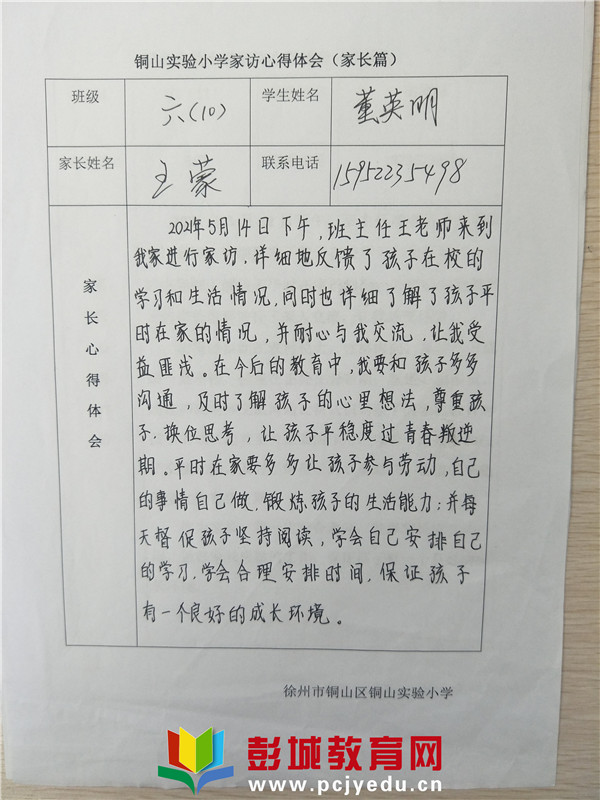 铜山实验小学家访心得体会（家长篇）
班级 六(10) 学生姓名 董英明
家长姓名 王蒙 联系电话 15952235498
家长心得体会
2021年5月14日下午,班主任王老师来到
我家进行家访.详细地反馈了孩子在校的
学习和生活情况,同时也详细了解了孩子平
时在家的情况,并耐心与我交流,让我受
益匪浅。在今后的教育中,我要和孩子多多
沟通,及时了解孩子的心里想法,尊重孩
子.换位思考,让孩子平稳度过青春叛逆
期。平时在家要多多让孩子参与劳动,自己
的事情自己做.锻炼孩子的生活能力;并每
天督促孩子坚持阅读,学会自己安排自己
的学习.学会合理安排时间,保证孩子
有一个良好的成长环境。
徐州市铜山区铜山实验小学
彭城教育网
www.pcjyedu.cn